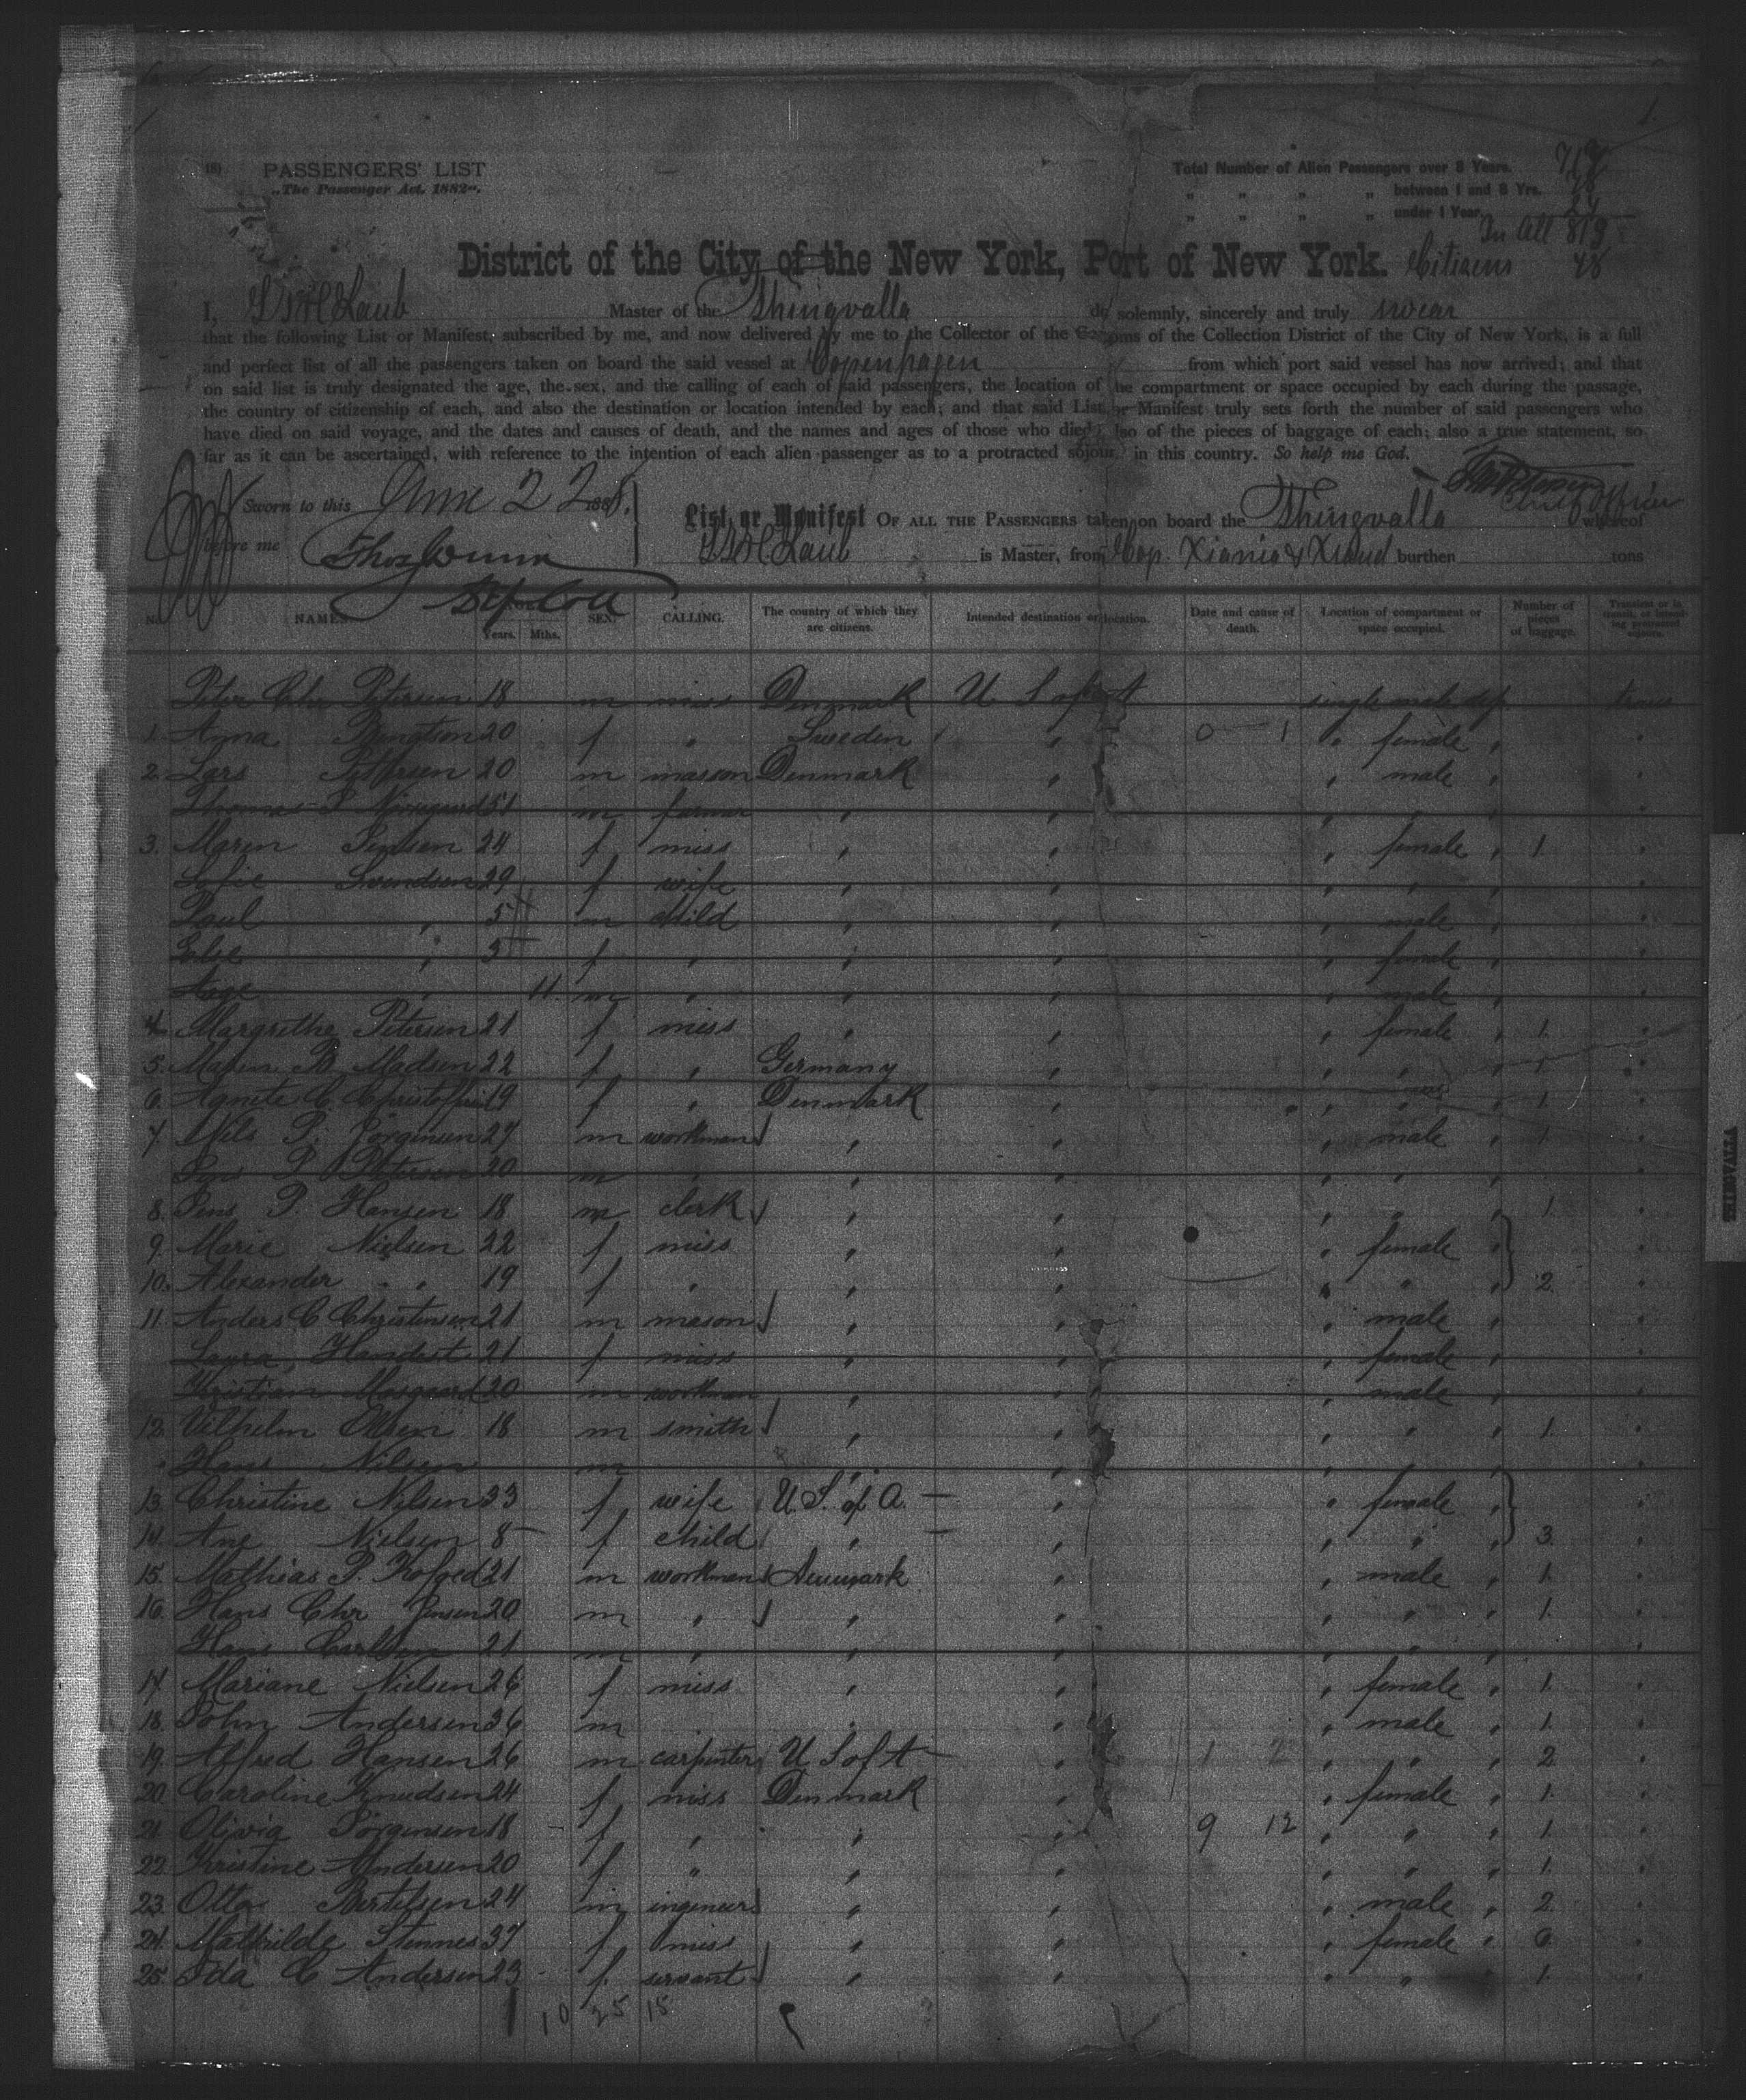 PASSENGERS' LIST
„The Passenger Act, 1882".
Total Number of Alien Passengers over 8 Years.
„ „ „ „ between 1 and 8 Yrs.
„ „ „ „ under 1 Year.
In all 819
District of the City of the New York, Port of New York. Citizens 48
I, Laub Master of the Thingvalla do solemnly, sincerely and truly swear
that the following List or Manifest, subscribed by me, and now delivered by me to the Collector of the Customs of the Collection District of the City of New York, is a full
and perfect list of all the passengers taken on board the said vessel at Copenhagen from which port said vessel has now arrived; and that
on said list is truly designated the age, the sex, and the calling of each of said passengers, the location of the compartment or space occupied by each during the passage,
the country of citizenship of each, and also the destination or location intended by each; and that said List or Manifest truly sets forth the number of said passengers who
have died on said voyage, and the dates and causes of death, and the names and ages of those who died; also of the pieces of baggage of each; also a true statement, so
far as it can be ascertained, with reference to the intention of each alien passenger as to a protracted sojourn in this country. So help me God.
Chief Officer
Sworn to this June 22 188
before me
List or Manifest OF ALL THE PASSENGERS taken on board the Thingvalla whereof
Laub is Master, from Cop. Xiania & Xsand burthen tons
No. NAMES Years. Mths. SEX. CALLING. The country of which they are citizens. Intended destination or location. Date and cause of death. Location of compartment or space occupied. Number of pieces of baggage. Transient or in transit, or intending protracted sojourn.
Peter Chr Petersen 18 m miss Denmark U S of A single male dep
1. Anna Bengtson 20 f „ Sweden „ 0 1 „ female „ „
2. Lars Pettersen 20 m mason Denmark „ „ male „ „
Thomas 51 m farmer „ „ „ „ „ „
3. Maren Jensen 24 f miss „ „ „ female „ 1 „
Sofie Svendsen 29 f wife „ „ „ „ „ „
Paul „ 5 m child „ „ „ male „ „
Else „ 3 f „ „ „ „ female „ „
Aage „ 11. m „ „ „ „ male „ „
4. Margrethe Petersen 21 f miss „ „ „ female „ 1. „
5. Maren B Madsen 22 f „ Germany „ „ „ „ 1 „
6. Agnete C 19 f „ Denmark „ „ „ „ 1. „
7. Nils P. Jörgensen 27 m workman „ „ „ male „ 1. „
Jens P Petersen 20 m „ „ „ „ „ „ „
8. Jens P. Hansen 18 m clerk „ „ „ „ „ 1. „
9. Marie Nielsen 22 f miss „ „ „ female „ „
10. Alexander „ 19 f „ „ „ „ „ „ 2. „
11. Anders C Christensen 21 m mason „ „ „ male „ „
Laura 21 f miss „ „ „ female „ „
Kristian 20 m workman „ „ „ male „ „
12. Vilhelm Olsen 18 m smith „ „ „ „ „ 1. „
Hans Nilsen m „ „ „ „ „ „
13. Christine Nilsen 33 f wife U. S. of A. „ „ female „ „
14. Ane Nielsen 8 f child „ „ „ „ „ 3. „
15. Mathias P. Kofoed 21 m workman Denmark „ „ male „ 1. „
16. Hans Chr Jensen 20 m „ „ „ „ „ „ 1. „
Hans Carlsen 21 m „ „ „ „ „ „ „
17. Mariane Nielsen 26 f miss „ „ „ female „ 1. „
18. John Andersen 36 m „ „ „ male „ 1. „
19. Alfred Hansen 26 m carpenter U S of A „ 1 2 „ „ „ 2 „
20. Caroline Knudsen 24 f miss Denmark „ „ female „ 1. „
21. Olivia Jörgensen 18 f „ „ „ 9 12 „ „ „ 1. „
22. Kristine Andersen 20 f „ „ „ „ „ „ 1. „
23. Otto Bertelsen 24 m ingenieur „ „ „ male „ 2. „
24. Mathilde 37 f miss „ „ „ female „ „
25. Ida C Andersen 23 f servant „ „ „ „ 1. „
10 25 15